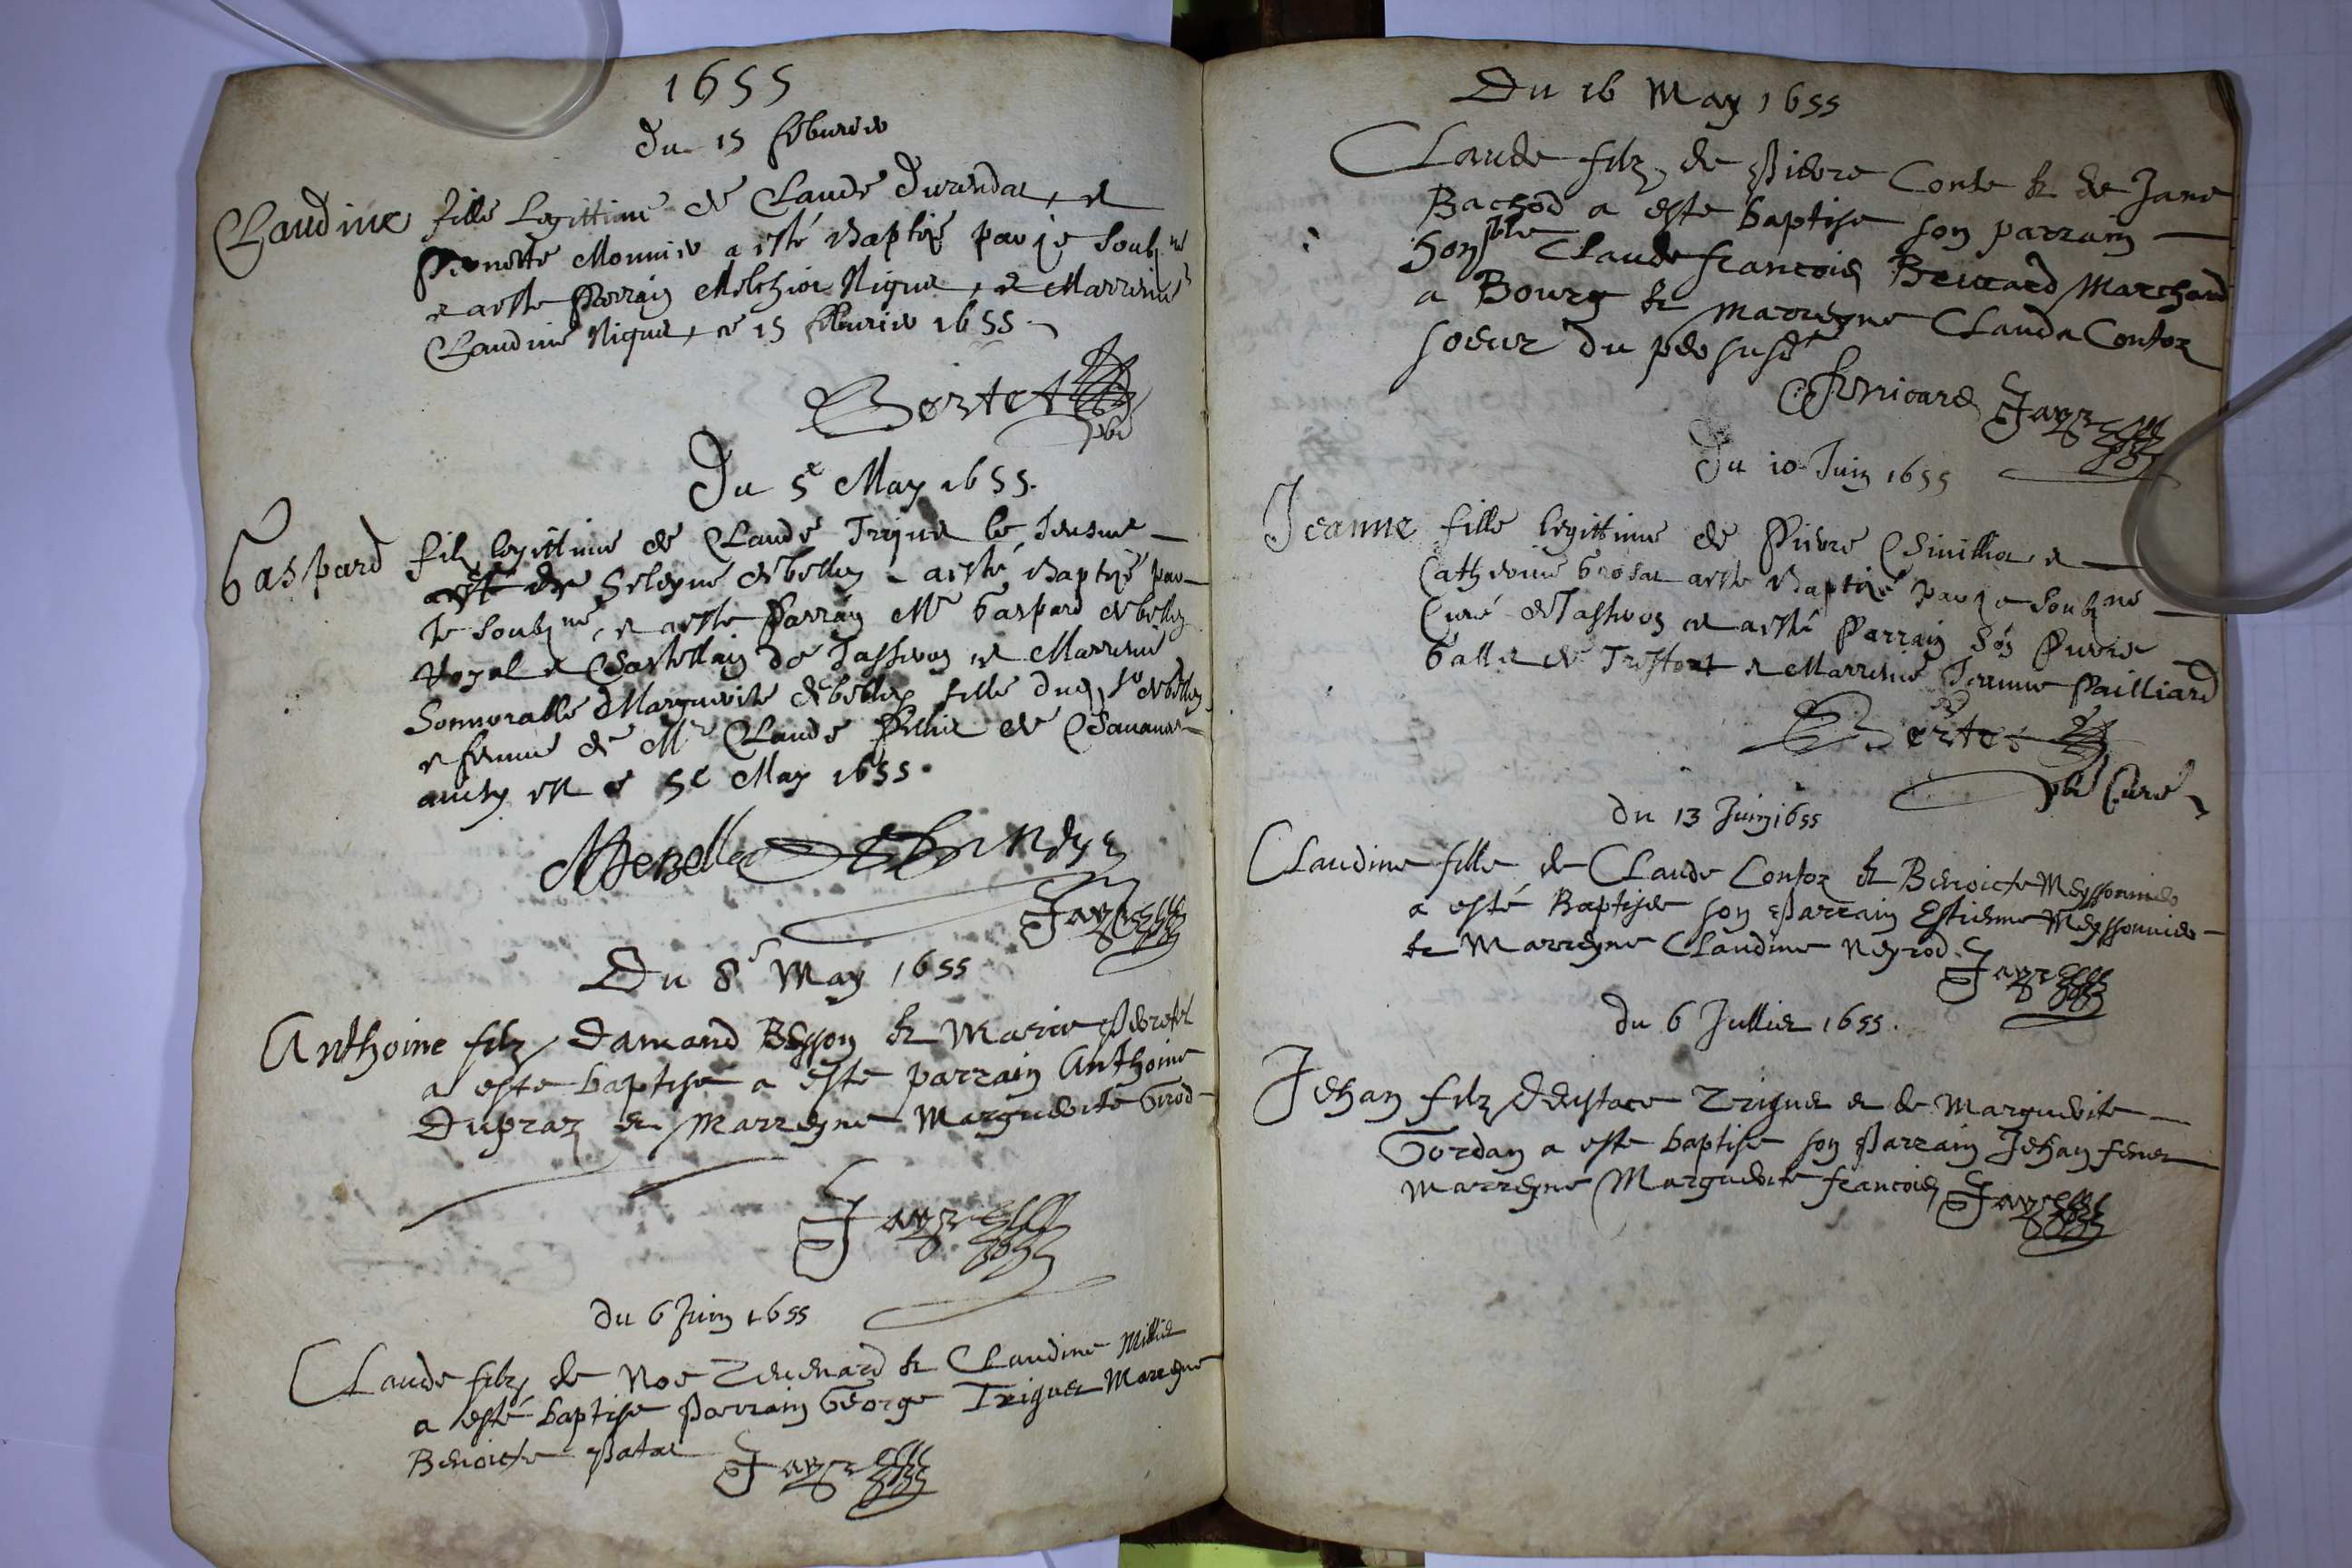 1655
du 15 feburier
Claudine fille legittime de Claude Durendat, et
Pernette Monnier a esté Baptizé par je soubz né
et a esté Parrain Melchior Niguet, et Marrenne
Claudine Niguet, ce 15 feburier 1655.
Bertet
pbr
Du 5e May 1655.
Gaspard filz legittime de Claude Triquet le Jeusne
de Selegne a esté Baptizé par
je soubz né, et a esté Parrain Mr Gaspard
Royal et Chastellain de Jasseron et Marrenne
honnorable Marguerite fille dud sr
et femme de Mr Claude
ce 5e May 1655.
Jayr
Du 8e May 1655
Anthoine filz Damand Besson & Marie Perret
a este baptise a este parrain Anthoine
Dupraz & Marreyne Marguerite Girod
Jayr
du 6 Juin 1655
Claude filz de Noe & Claudine Millier
a esté baptise Parrain George Triquet Marreyne
Benoicte Patat Jayr
Du 16 May 1655
Claude filz de Pierre Conte & de Jane
Bachod a este baptise son parrain
honble Claude francois Marchand
a Bourg & marreyne Clauda Contoz
soeur du pere susdt
Jayr
Du 10 Juin 1655
Jeanne fille legittime de Pierre et
Catherine a esté Baptizé par je soubz né
Curé de Jasseron et a esté Parrain Pierre
et Marrenne Jeanne Pailliard
Bertet
pbr Curé
du 13 Juin 1655
Claudine fille de Claude Contoz & Benoicte Meyssonnier
a esté Baptisée son Parrain Estienne Meyssonnier
& Marreyne Claudine Neyrod Jayr
du 6 Jullier 1655.
Jehan filz Deustace Triquet et de Marguerite
Gordan a este baptise son Parrain Jehan
Marreyne Marguerite francois Jayr